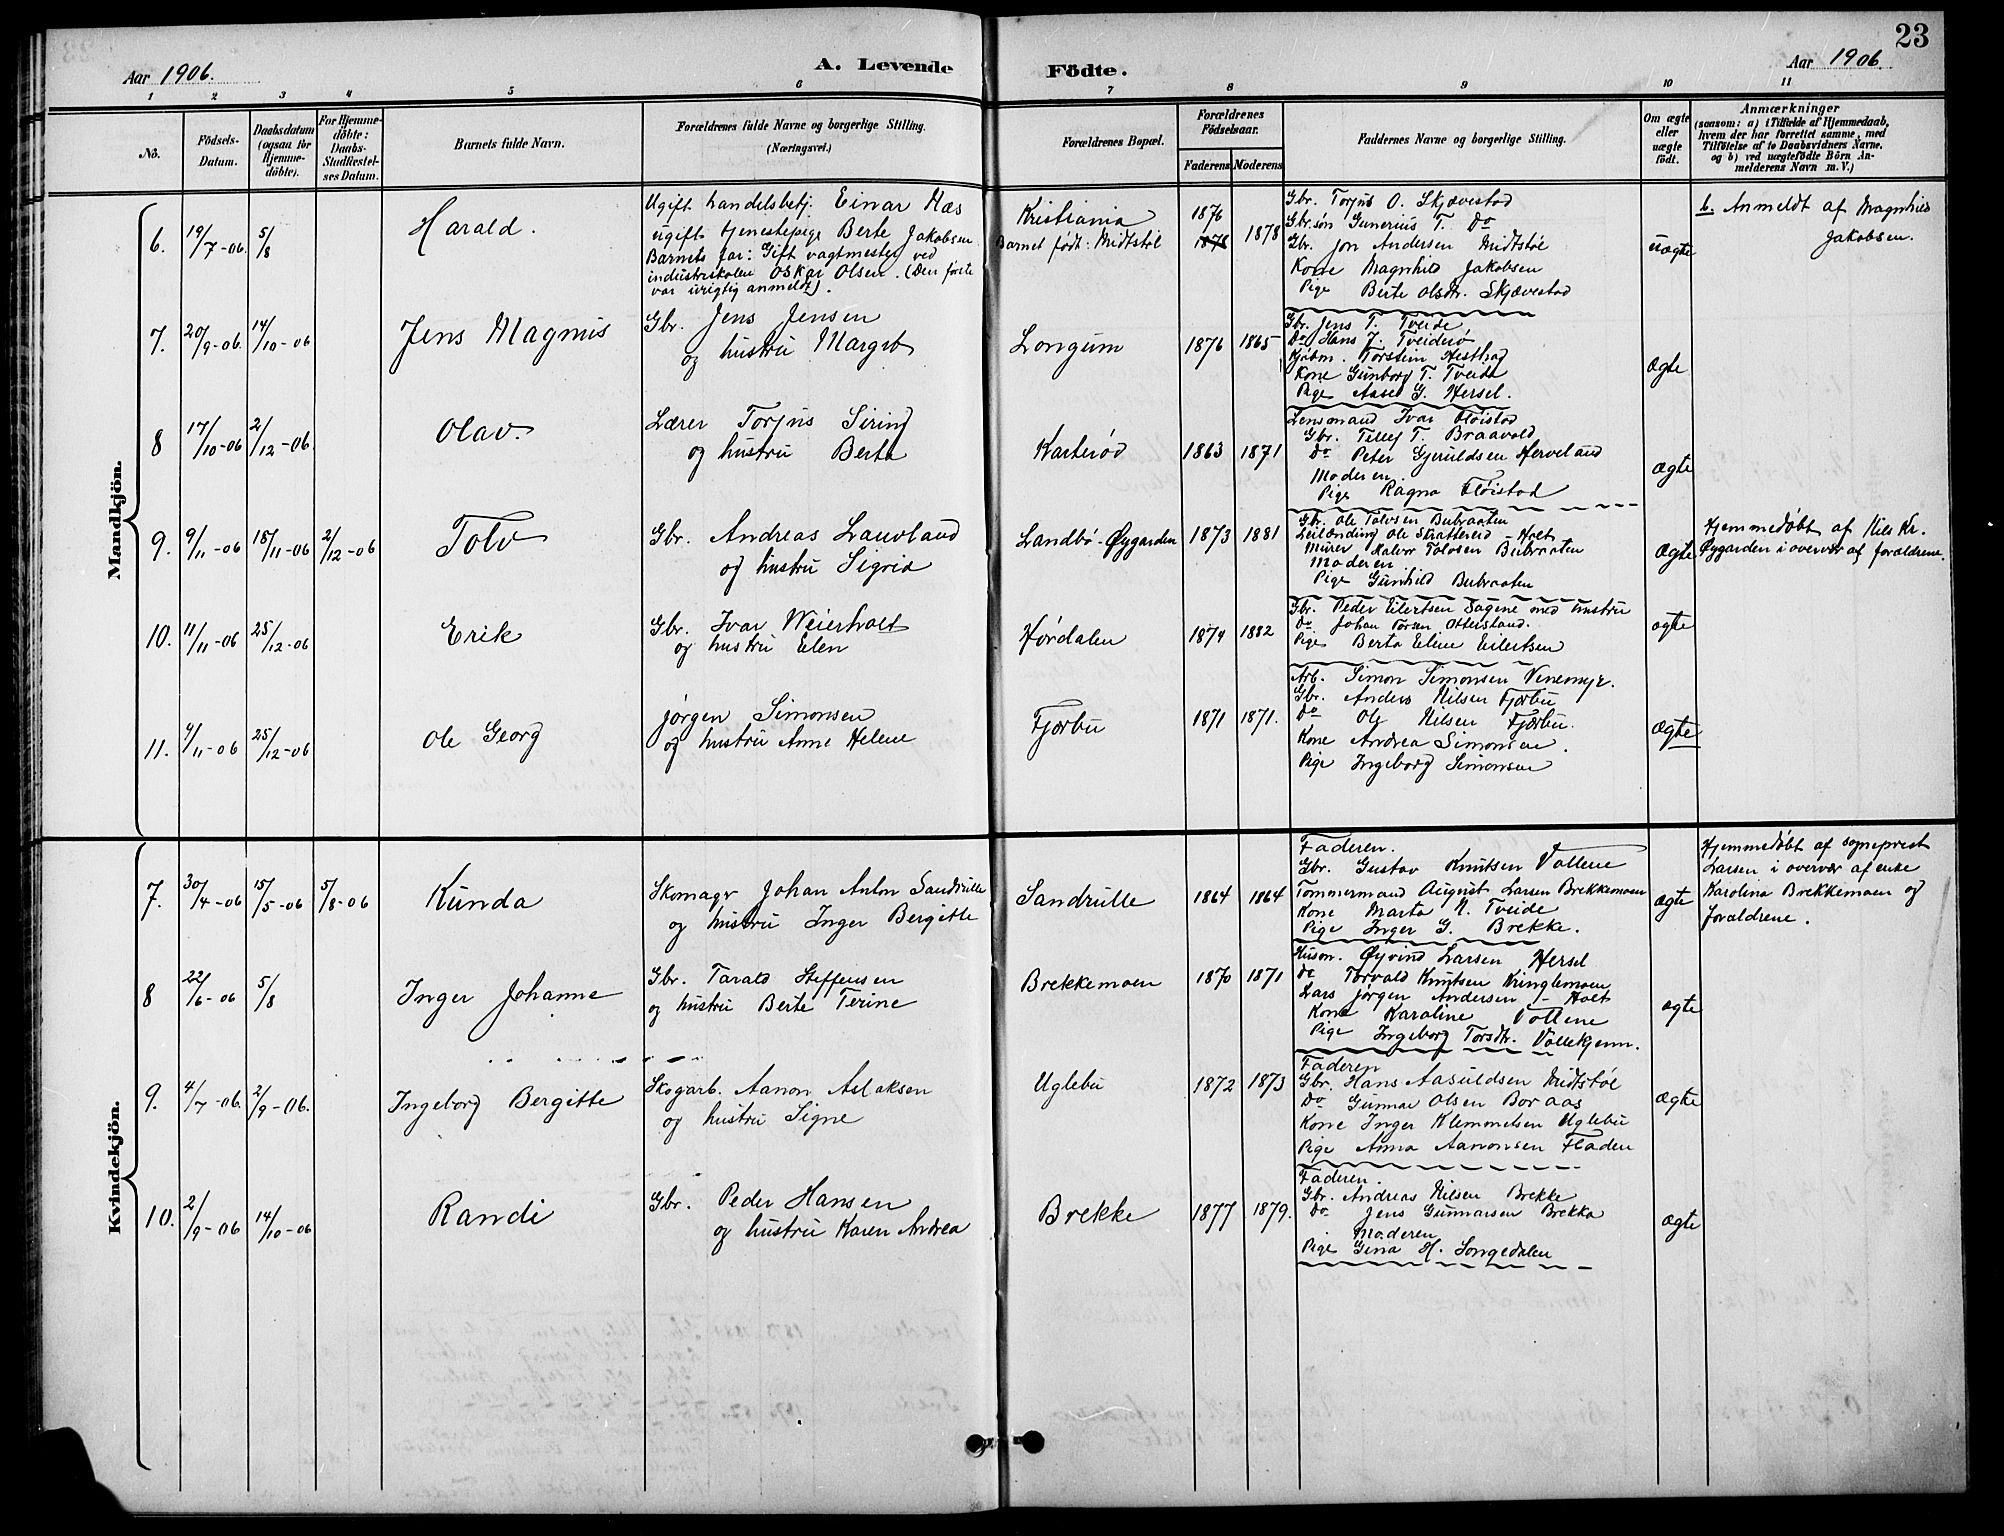 23
Aar 1906.
A. Levende Födte.
Aar 1906.
1 2 3 4 5 6 7 8 9 10 11
No.
Födsels-Datum.
Daabsdatum (ogsaa for Hjemme-döbte).
For Hjemme-döbte: Daabs-Stadfæstel-ses Datum.
Barnets fulde Navn.
Forældrenes fulde Navne og borgerlige Stilling.
(Næringsvei.)
Forældrenes Bopæl.
Forældrenes Födselsaar.
Faderens Moderens
Faddernes Navne og borgerlige Stilling.
Om ægte eller uægte födt.
Anmærkninger
(saasom: a) i Tilfælde af Hjemmedaab,
hvem der har forrettet samme, med
Tilföielse af to Daabsvidners Navne.
og b) ved uægtefödte Börn An-
melderens Navn m. V.)
Mandkjön.
6. 19/7-06. 5/8 Harald.
Ugift handelsbetj. Einar Næs
ugift tjenestepige Berte Jakobsen
Barnets far: Gift vagtmester ved
industriskolen Oskar Olsen. (Den første
var urigtig anmeldt).
Kristiania
Barnet født: Midtstøl
1876
1878 1878
Gbr. Torjus O. Skjævestad
Gbr.søn Gunerius T. Do
Gbr. Jon Andersen Midtstøl
Kone Magnhild Jakobsen
Pige Berte Olsdtr. Skjævestad
uægte
b. Anmeldt af Magnhild
Jakobsen.
7. 20/9-06. 14/10-06 Jens Magnus
Gbr. Jens Jensen
og hustru Margit
Longum 1876 1865
Gbr. Jens T. Tveide
Do Hans J. Tveiderø
Kjøbm. Torstein Hesthag
Kone Gunborg T. Tveide
Pige Aasel G. Hersel.
Ægte
8 17/10-06 2/12-06 Olav.
Lærer Torjus Siring
og hustru Berta
Karterød 1863 1871
Lensmand Ivar Fløistad
Gbr. Tellef T. Braavold
Do Peter Gjeruldsen Herveland
Moderen
Pige Ragna Fløistad
Ægte
9. 9/11-06 18/11-06 2/12-06 Tolv
Gbr. Andreas Lauvland
og hustru Sigrid
Landbø-Øygarden 1873 1881
Gbr. Ole Tolvsen Bubraaten
Leilænding Ole Skattered - Holt
Murer Halvor Tolvsen Bubraaten
Moderen
Pige Gunhild Bubraaten
Ægte
Hjemmedøbt af Nils Kr.
Øygarden i overvær af forældrene.
10. 11/11-06 25/12-06 Erik
Gbr. Ivar Weierholt
og hustru Elen
Hørdalen 1874 1882
Gbr. Peder Eilertsen Sagene med hustru
Do Johan Torsen Otterstand.
Pige Berta Eline Eilertsen
ægte
11. 4/11-06 25/12-06 Ole Georg
Jørgen Simonsen
og hustru Anne Helene
Fjærbu 1871 1871.
Arb. Simon Simonsen Venemyr.
Gbr. Anders Nilsen Fjærbu
Do Ole Nilsen Fjærbu.
Kone Andrea Simonsen.
Pige Ingeborg Simonsen
Ægte
Kvindekjön.
7. 30/4-06 15/5-06 5/8-06 Kunda
Skomager Johan Anton Sandrulle
og hustru Inger Bergitte
Sandrulle 1864 1864
Faderen.
Gbr. Gustav Knutsen Vollene
Tømmermand August Larsen Brekkemoen
Kone Marta N. Tveide
Pige Inger G. Brekke.
ægte
Hjemmedøbt af sogneprest
Larsen i overvær af enke
Karolina Brekkemoen og
forældrene.
8 22/6-06 5/8 Inger Johanne
Gbr. Tarald Steffensen
og hustru Berte Terine
Brekkemoen 1870 1871
Husm. Øyvind Larsen Hersel
Do Torvald Knutsen Kringlemoen
Lars Jørgen Andersen - Holt
Kone Karoline Vollene
Pige Ingeborg Torsdtr. Vallekjenn.
ægte
9. 4/7-06. 2/9-06. Ingeborg Bergitte
Skogarb. Aanon Aslaksen
og hustru Signe
Uglebu 1872 1873
Faderen
Gbr. Hans Aasuldsen Midtstøl
Do Gunnar Olsen Boraas
Kone Inger Klemmetsen Uglebu
Pige Anna Aanonsen Fladen
ægte
10. 2/9-06 14/10-06 Randi
Gbr. Peder Hansen
og hustru Karen Andrea
Brekke 1877 1879.
Faderen.
Gbr. Andreas Nilsen Brekke
Do Jens Gunnarsen Brekka
Moderen
Pige Gina H. Songedalen
ægte